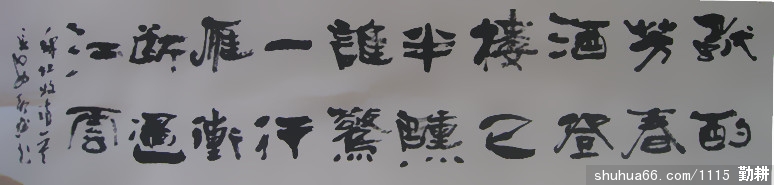 獨酌
芳春
酒登
樓已
半醺
誰驚
一行
雁衝
斷過
江雲
shuhua66.com/1115 勤耕